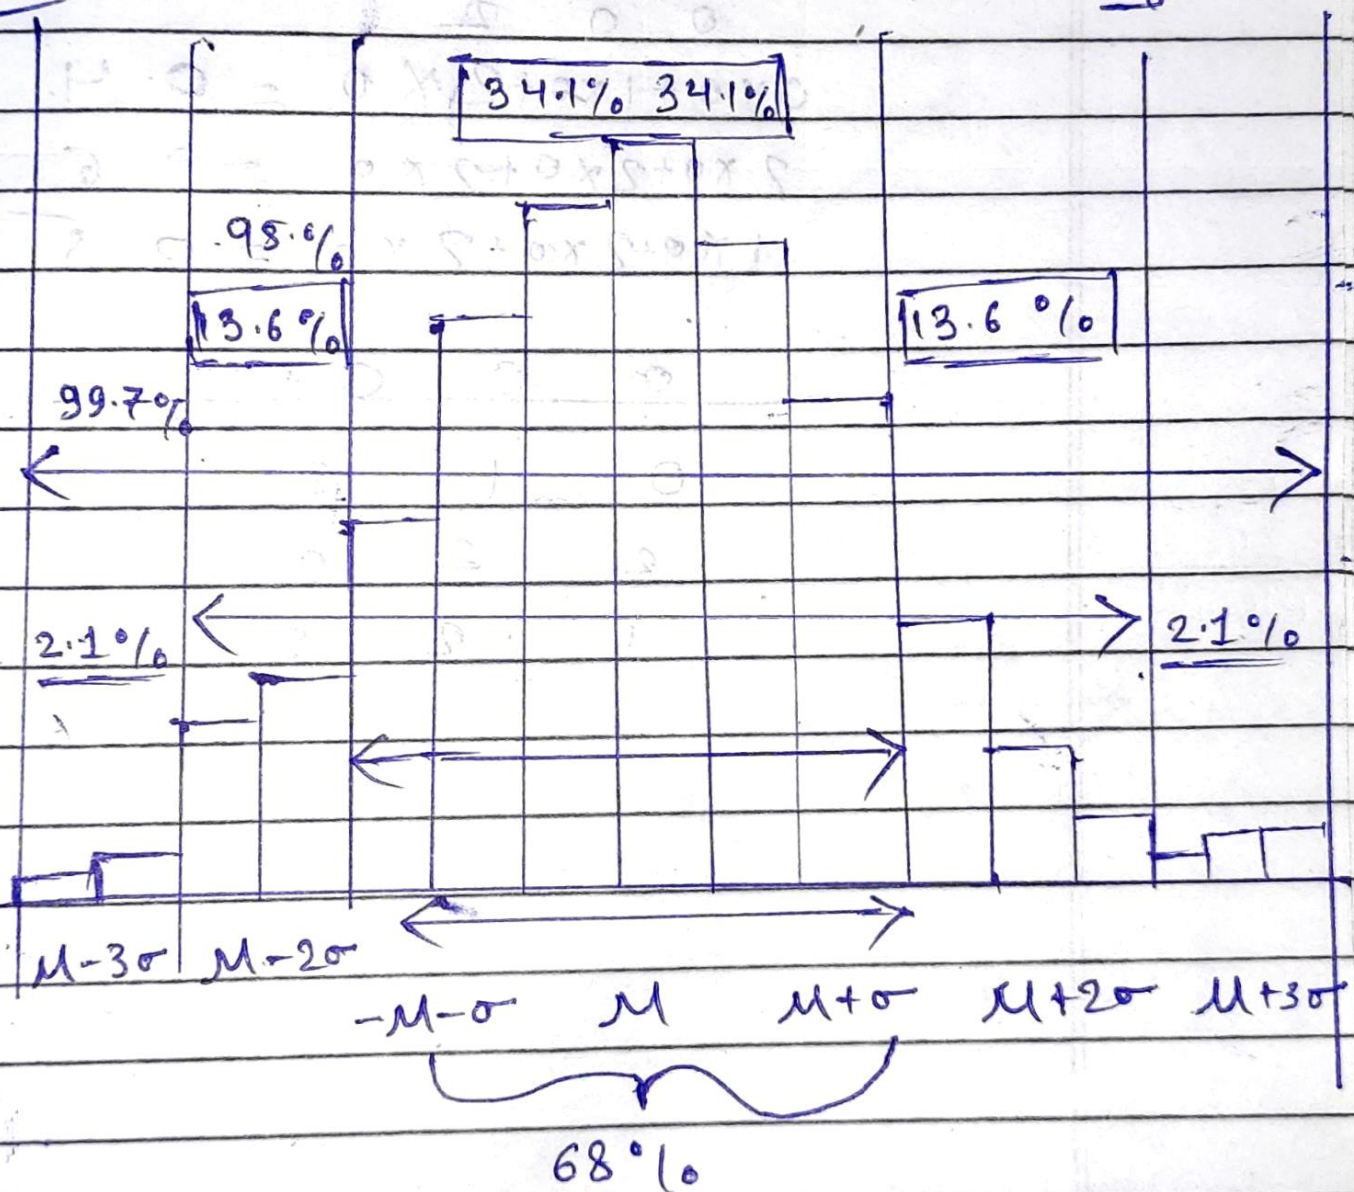 34.1% 34.1%
95.%
13.6%
13.6 %
99.7%
2.1%
2.1%
μ-3σ μ-2σ
-μ-σ μ μ+σ μ+2σ μ+3σ
68%